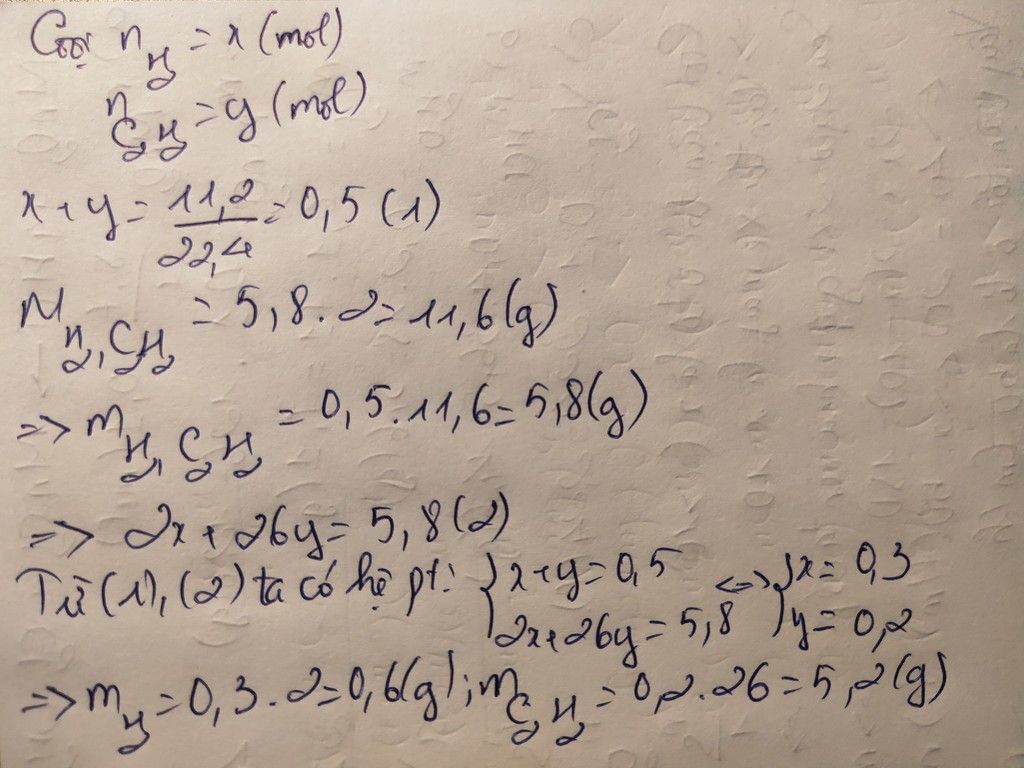 Gọi n_H₂ = x (mol)
n_C₂H₂ = y (mol)
x + y = 11,2 / 22,4 = 0,5 (1)
M_H₂, C₂H₂ = 5,8 . 2 = 11,6 (g)
=> m_H₂, C₂H₂ = 0,5 . 11,6 = 5,8 (g)
=> 2x + 26y = 5,8 (2)
Từ (1), (2) ta có hệ pt: { x + y = 0,5 <=> { x = 0,3
2x + 26y = 5,8 y = 0,2
=> m_H₂ = 0,3 . 2 = 0,6 (g) ; m_C₂H₂ = 0,2 . 26 = 5,2 (g)